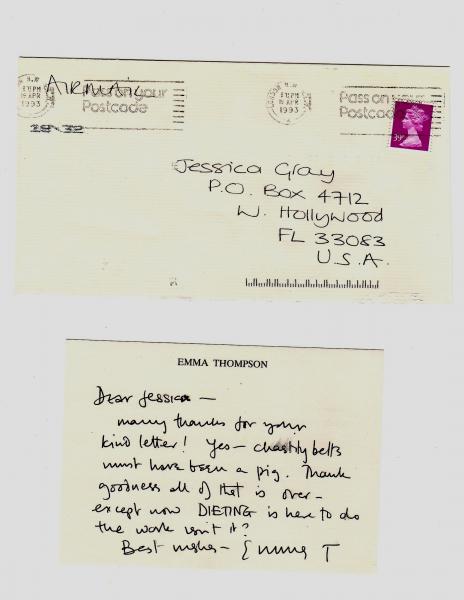 AIRMAIL
N.W
8 15PM
19 APR
1993
Pass on your
Postcode
N.W
8 15PM
19 APR
1993
Pass on your
Postcode
39P
Jessica Gray
P.O. Box 4712
W. Hollywood
FL 33083
U.S.A.
EMMA THOMPSON
Dear Jessica —
many thanks for your
kind letter! Yes – chastity belts
must have been a pig. Thank
goodness all of that is over –
except now DIETING is here to do
the work isn't it?
Best wishes – Emma T